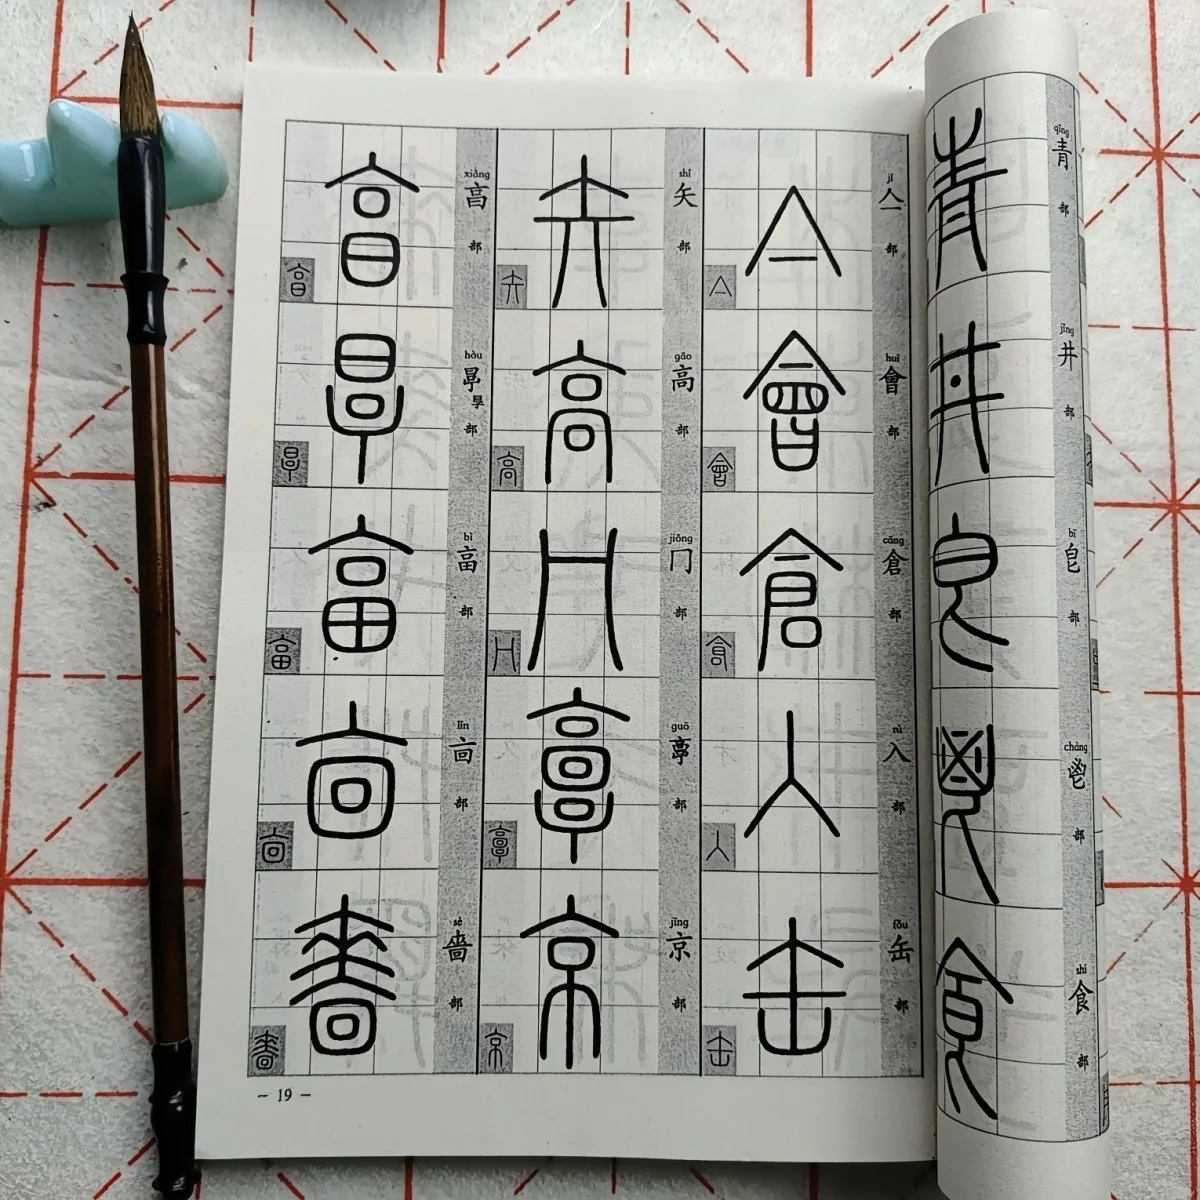 qīng 青部
jǐng 井部
bī 皀部
chàng 鬯部
shí 食部
jí 亼部
huì 會部
cāng 倉部
rù 入部
fǒu 缶部
shǐ 矢部
gāo 高部
jiōng 冂部
guō 𩫏部
jīng 京部
xiǎng 亯部
hòu 㫗部
bì 畗部
lǐn 㐭部
sè 嗇部
– 19 –